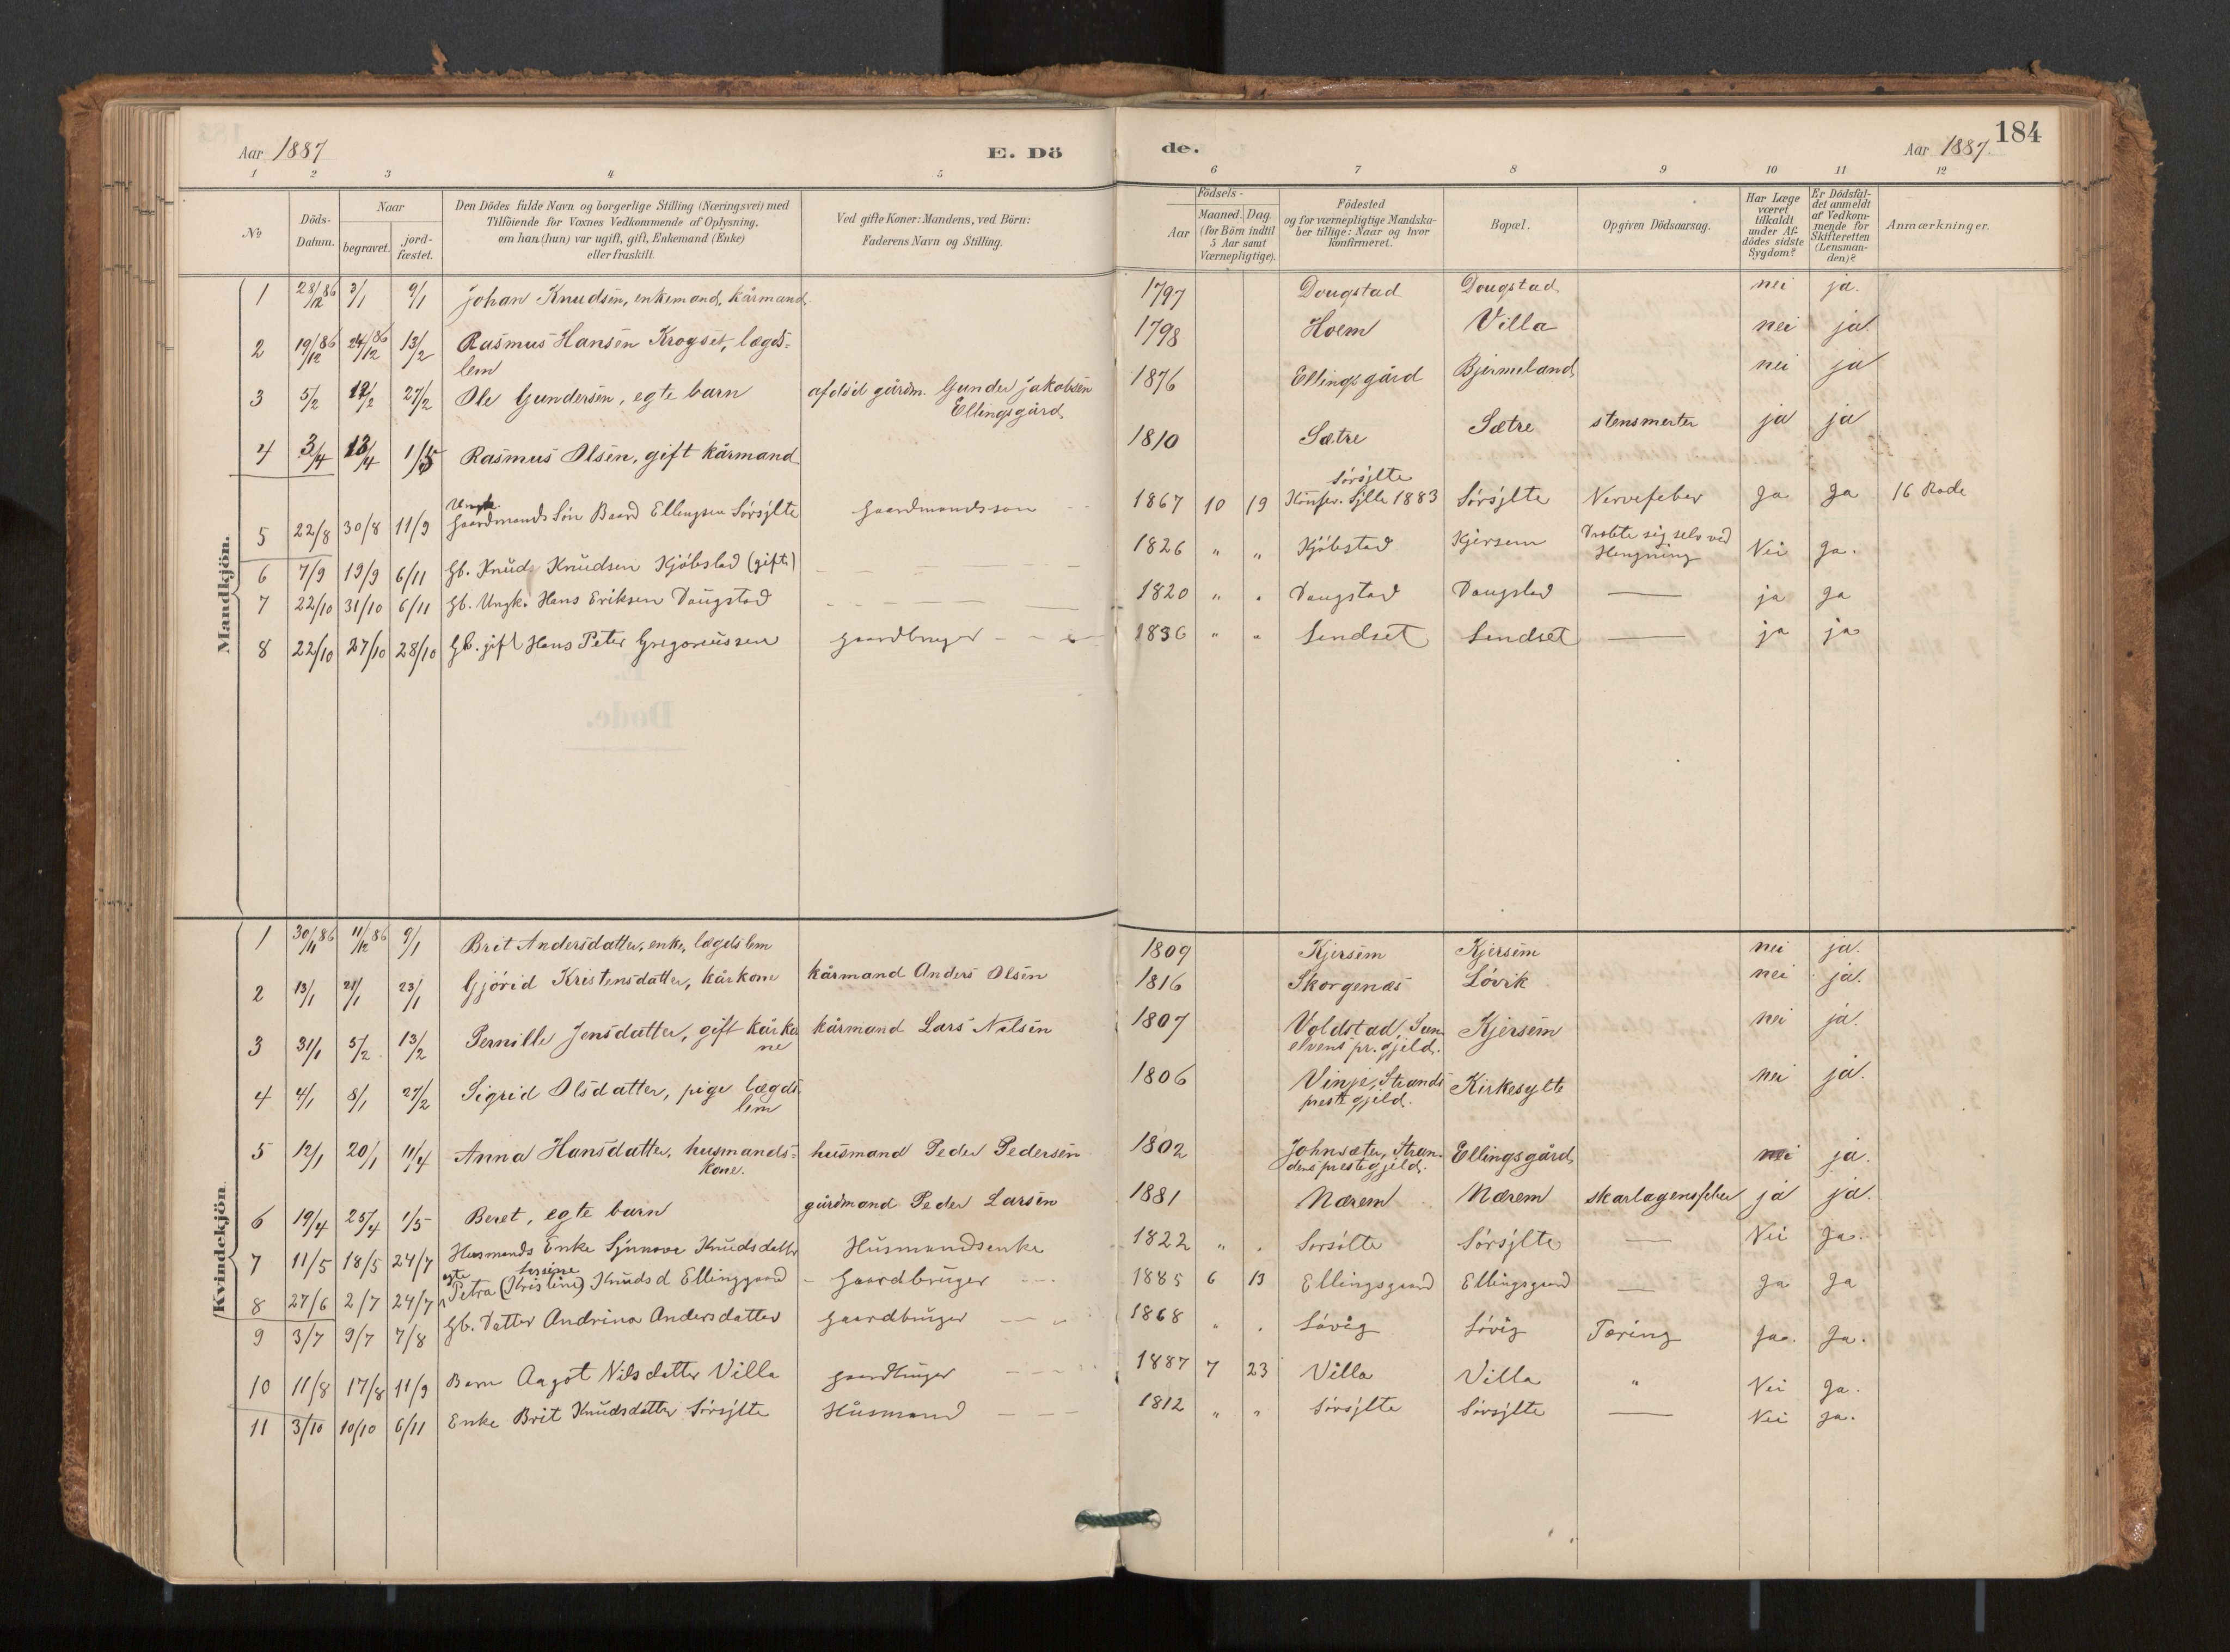 184
Aar 1887 E. Dö de. Aar 1887.
1 2 3 4 5 6 7 8 9 10 11 12
No Döds-Datum. Naar begravet. jord-fæstet. Den Dödes fulde Navn og borgerlige Stilling (Næringsvei) med Tilföiende for Voxnes Vedkommende af Oplysning, om han (hun) var ugift, gift, Enkemand (Enke) eller fraskilt. Ved gifte Koner: Mandens, ved Börn: Faderens Navn og Stilling. Födsels- Aar Maaned. Dag. (for Börn indtil 5 Aar samt Værnepligtige). Födested og for værnepligtige Mandska-ber tillige: Naar og hvor konfirmeret. Bopæl. Opgiven Dödsaarsag. Har Læge været tilkaldt under Af-dödes sidste Sygdom? Er Dödsfal-det anmeldt af Vedkom-mende for Skifteretten (Lensman-den)? Anmærkninger.
Mandkjön.
1 28/12 86 3/1 9/1 Johan Knudsen, enkemand, kårmand. 1797 Dougstad Dougstad nei ja.
2 19/12 86 24/12 86 13/2 Rasmus Hansen Krogset, lægds-lem 1798 Hoem Villa nei ja.
3 5/2 12/2 27/2 Ole Gundersen, egte barn afdød gårdm. Gunder Jakobsen Ellingsgård 1876 Ellingsgård Bjermeland nei ja
4 3/4 13/4 1/5 Rasmus Olsen, gift kårmand 1810 Sætre Sætre stensmerter ja ja
5 22/8 30/8 11/9 Ungk. Gaardmands Søn Baard Ellingsen Sørsjlte Gaardmandsson 1867 10 19 Sørsjlte Konfir. Sjlte 1883 Sørsjlte Nervefeber Ja Ja 16 Rode
6 7/9 19/9 6/11 Gb. Knud Knudsen Kjøbstad (gift) 1826 " " Kjøbstad Kjersem Dræbte sig selv ved Hengning Nei Ja.
7 22/10 31/10 6/11 Gb. Ungk. Hans Eriksen Daugstad 1820 " " Daugstad Daugstad — ja Ja
8 22/10 27/10 28/10 Gb. gift Hans Peter Gregoriussen Gaardbruger 1836 " " Lendset Lendset — ja ja
Kvindekjön.
1 30/11 86 11/12 86 9/1 Brit Andersdatter, enke, lægdslem 1809 Kjersem Kjersem nei ja.
2 13/1 21/1 23/1 Gjørid Kristensdatter, kårkone kårmand Anders Olsen 1816 Skorgenæs Løvik nei ja.
3 31/1 5/2 13/2 Pernille Jensdatter, gift kårkone kårmand Lars Nilsen 1807 Voldstad, Sun-elvens pr. gjeld. Kjersem nei ja.
4 4/1 8/1 27/2 Sigrid Olsdatter, pige lægds-lem 1806 Vinje, Strands prestegjeld. Kirkesylte nei ja.
5 12/1 20/1 11/4 Anna Hansdatter, husmands-kone. husmand Peder Pedersen 1802 Johnsæter, Stran-dens prestegjeld. Ellingsgård nei ja.
6 19/4 25/4 1/5 Beret, egte barn gårdmand Peder Larsen 1881 Nærem Nærem skarlagensfeber ja ja.
7 11/5 18/5 24/7 Husmands Enke Synnove Knudsdatter Husmandsenke 1822 " " Sorsölte Sörsjlte — Nei Ja.
8 27/6 2/7 24/7 egte Petra (Kristine) Knudsd Ellinggaard Gaardbruger 1885 6 13 Ellingsgaard Ellingsgaard — Ja Ja
9 3/7 9/7 7/8 Gb. Datter Andrina Andersdatter Gaardbruger 1868 " " Løvig Løvig Tæring Ja. Ja.
10 11/8 17/8 11/9 Barn Aagot Nilsdatter Villa Gaardbruger 1887 7 23 Villa Villa " Nei Ja.
11 3/10 10/10 6/11 Enke Brit Knudsdatter Sörsjlte Husmand 1812 " " Sörsjlte Sörsjlte — Nei Ja.